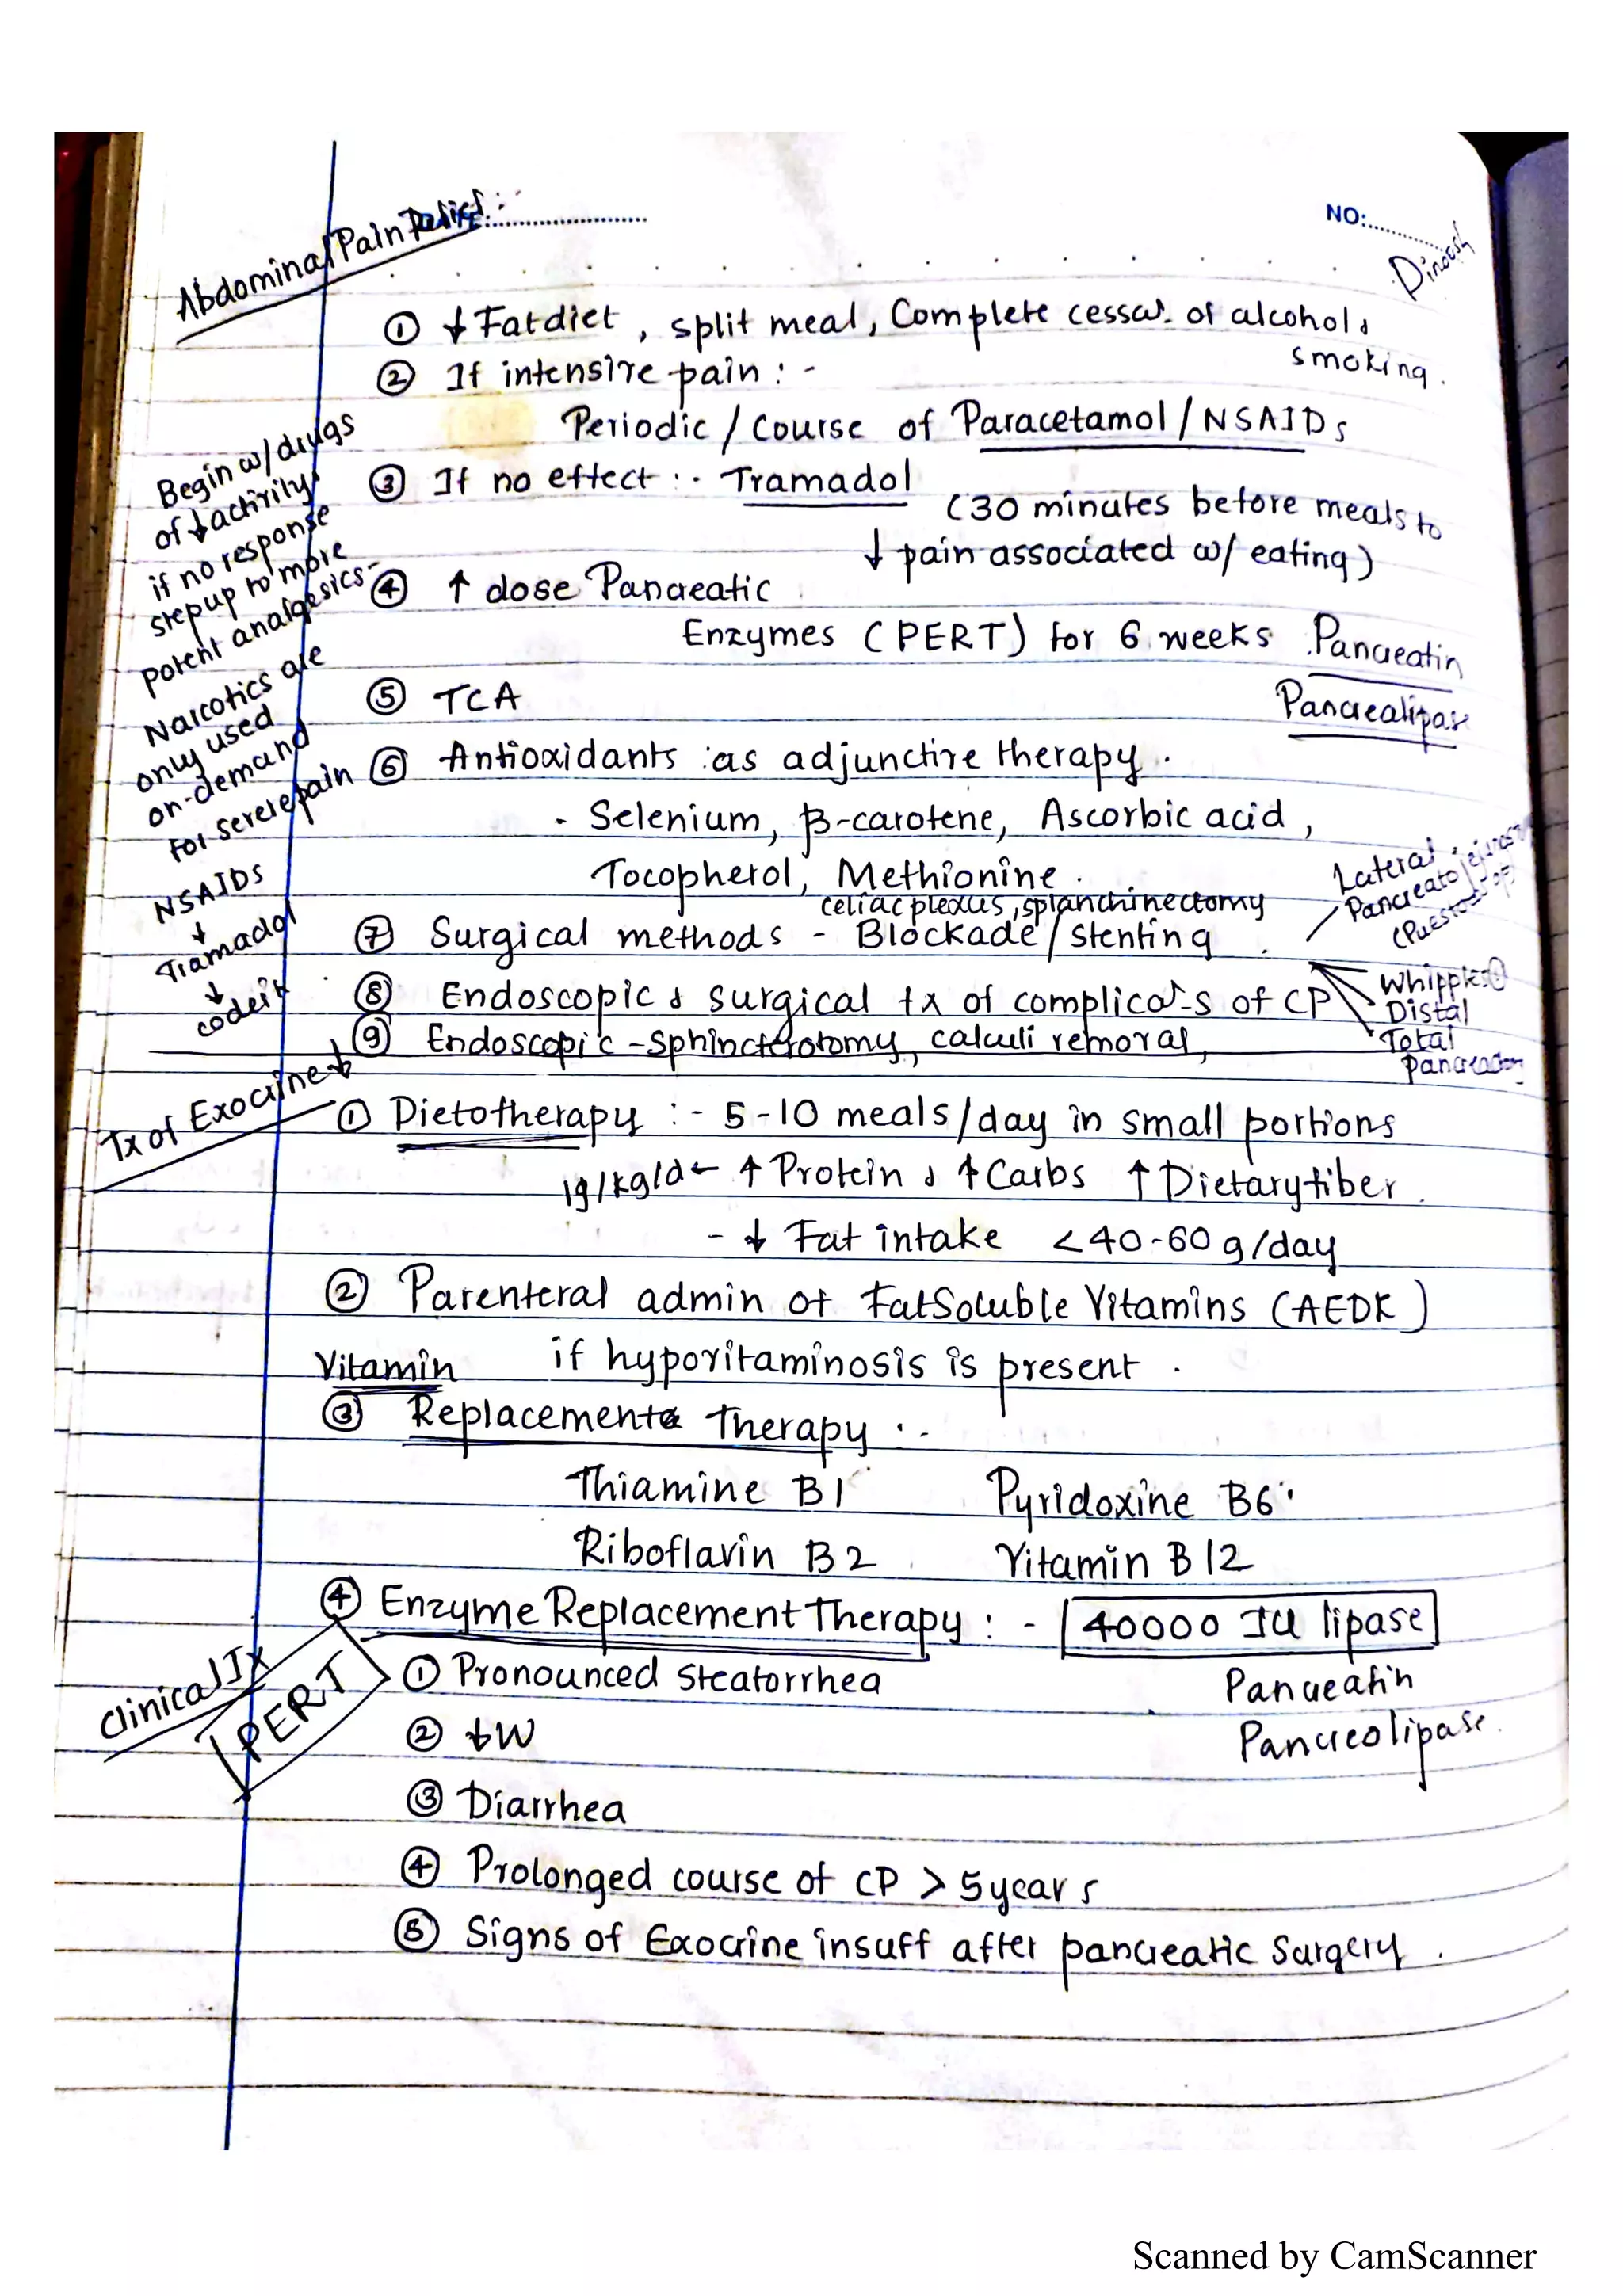 Abdominal Pain Relief :-
NO:
Dinoosh
① ↓ Fat diet , split meal, Complete cessaˢ. of alcohol &
smoking .
② If intensive pain : -
Periodic / Course of Paracetamol / NSAIDs
③ If no effect :- Tramadol
(30 minutes before meals to
↓ pain associated w/ eating)
④ ↑ dose Pancreatic
Enzymes (PERT) for 6 weeks . Pancreatin
Pancrealipase
⑤ TCA
⑥ Antioxidants : as adjunctive therapy .
- Selenium, β-carotene, Ascorbic acid ,
Tocopherol, Methionine .
celiac plexus , splanchinectomy
⑦ Surgical methods - Blockade / Stenting .
Lateral
Pancreato jejunos
(Puestow's op)
⑧ Endoscopic & surgical tx of complicaˢ-s of CP
Whipple's
Distal
Total
Pancreatin
⑨ Endoscopic - Sphincterotomy, calculi removal,
Begin w/ drugs
of ↓ activity
if no response
step up to more
potent analgesics-
Narcotics are
only used
on-demand
for severe pain
NSAIDS
↓
Tramadol
↓
codein
Tx of Exocrine ↓
① Dietotherapy : - 5-10 meals/day in small portions
1g/kg/d ← ↑ Protein & ↑ Carbs ↑ Dietary fiber .
- ↓ Fat intake <40-60 g/day
② Parenteral admin of Fat Soluble Vitamins (AEDK)
if hypovitaminosis is present .
Vitamin
③ Replacement Therapy : -
Thiamine B1 Pyridoxine B6
Riboflavin B2 Vitamin B12
④ Enzyme Replacement Therapy : - 40000 IU lipase
Pancreatin
Pancreolipase .
Clinical Ix
PERT
① Pronounced Steatorrhea
② ↓W
③ Diarrhea
④ Prolonged course of CP > 5 years
⑤ Signs of Exocrine insuff after pancreatic surgery .
Scanned by CamScanner